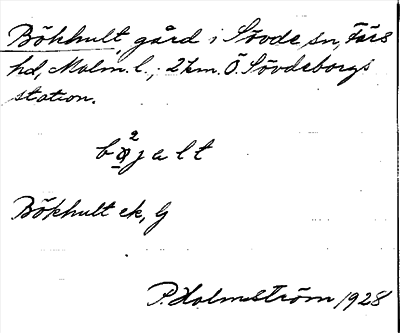 Bökhult, gård i Sövde sn, Färs
hd, Malm. l.; 2 km. Ö. Sövdeborgs
station.
2
bøjalt
Bökhult ek, G
P. Holmström 1928